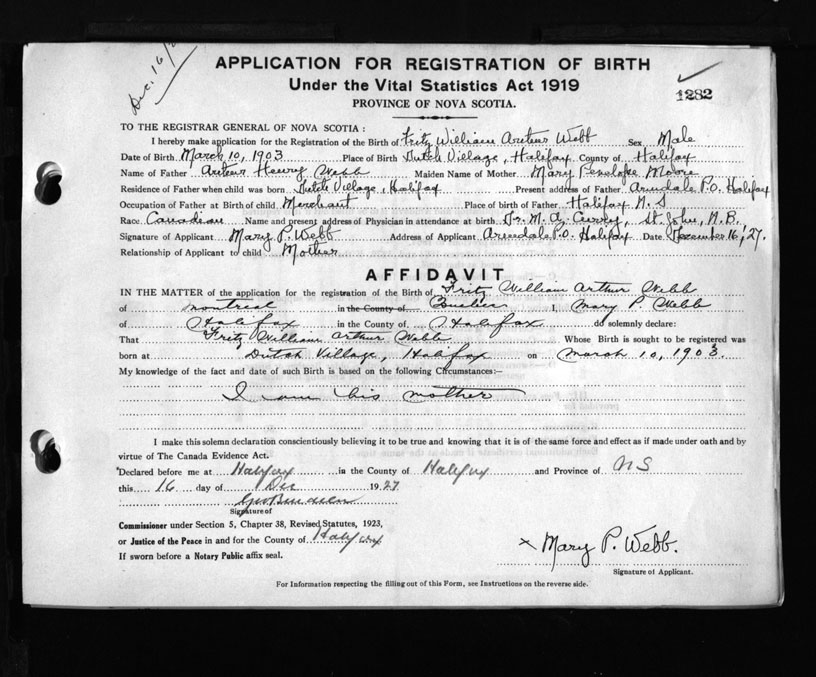 Dec. 16/2
APPLICATION FOR REGISTRATION OF BIRTH
Under the Vital Statistics Act 1919
1282
PROVINCE OF NOVA SCOTIA.
TO THE REGISTRAR GENERAL OF NOVA SCOTIA:
I hereby make application for the Registration of the Birth of Fritz William Arthur Webb Sex Male
Date of Birth March 10, 1903 Place of Birth Dutch Village, Halifax County of Halifax
Name of Father Arthur Henry Webb Maiden Name of Mother Mary Penelope Moore
Residence of Father when child was born Dutch Village, Halifax Present address of Father Armdale P.O. Halifax
Occupation of Father at Birth of child Merchant Place of birth of Father Halifax N.S
Race Canadian Name and present address of Physician in attendance at birth Dr. M. A. Curry, St. John, N.B.
Signature of Applicant Mary P. Webb Address of Applicant Armdale P.O. Halifax Date December 16, '27.
Relationship of Applicant to child Mother
AFFIDAVIT
IN THE MATTER of the application for the registration of the Birth of Fritz William Arthur Webb
of Montreal in the County of Quebec I, Mary P. Webb
of Halifax in the County of Halifax do solemnly declare:
That Fritz William Arthur Webb Whose Birth is sought to be registered was
born at Dutch Village, Halifax on March 10, 1903.
My knowledge of the fact and date of such Birth is based on the following Circumstances:—
I am his mother
I make this solemn declaration conscientiously believing it to be true and knowing that it is of the same force and effect as if made under oath and by
virtue of The Canada Evidence Act.
Declared before me at Halifax in the County of Halifax and Province of N S
this 16 day of Dec 1927
Signature of
Commissioner under Section 5, Chapter 38, Revised Statutes, 1923,
or Justice of the Peace in and for the County of Halifax
If sworn before a Notary Public affix seal.
x Mary P. Webb.
Signature of Applicant.
For Information respecting the filling out of this Form, see Instructions on the reverse side.